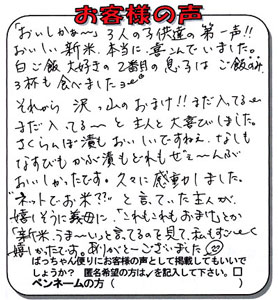 お客様の声
「おいしかぁ〜」3人の子供達の第一声!!
おいしい新米、本当に喜んでいました。
白ご飯大好きの2番目の息子はご飯
3杯も食べましたヨ
それから沢山のおまけ!!まだ入ってる
まだ入ってる〜と主人と大喜びしました。
さくらんぼ漬もおいしいですねぇ、なしも
なすびもかぶ漬もどれもぜぇ〜んぶ
おいしかったです。久々に感動しました。
"ネットでお米??"と言っていた主人が、
嬉しそうに義母に、「これもこれもおまけ」とか
「新米、うま〜い」と言ってるのを見て、私もすごく
嬉しかったです。ありがと〜ございました
ばっちゃん便りにお客様の声として掲載してもいいで
しょうか? 匿名希望の方は✓を記入して下さい。□
ペンネームの方( )